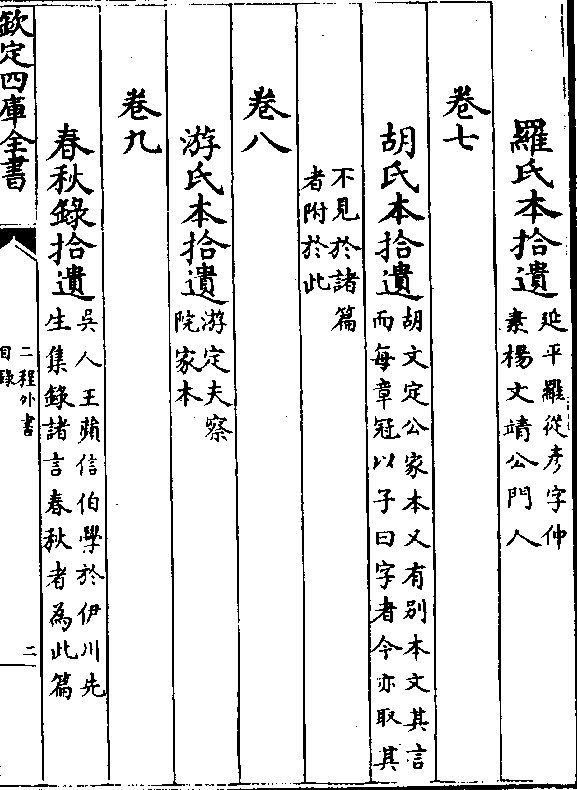 羅氏本拾遺延平羅從彥字仲
素楊文靖公門人
卷七
胡氏本拾遺胡文定公家本又有別本文其言
而每章冠以子曰字者今亦取其
不見於諸篇
者附於此
卷八
游氏本拾遺游定夫察
院家本
卷九
春秋錄拾遺吳人王蘋信伯學於伊川先
生集錄諸言春秋者為此篇
欽定四庫全書
二程外書
目錄
二